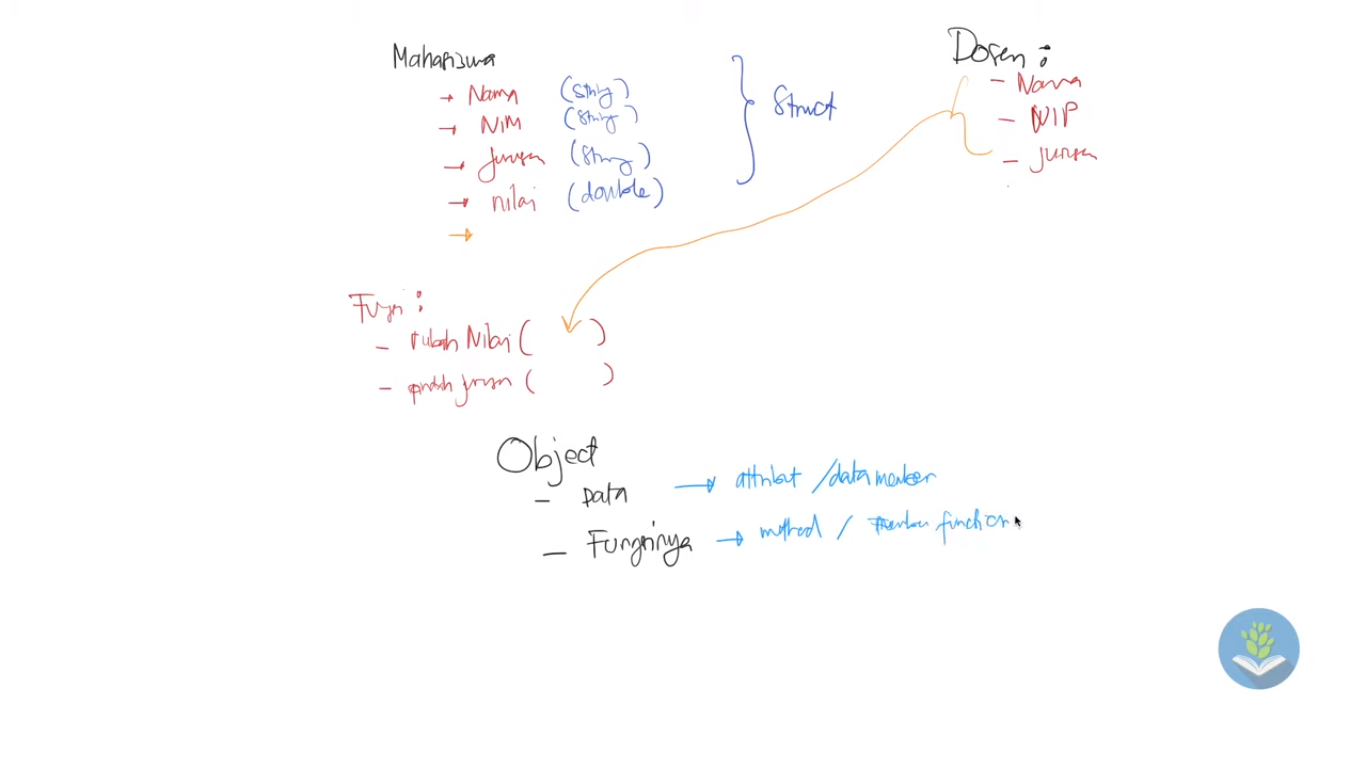 Mahasiswa
→ Nama (String)
→ NIM (String)
→ jurusan (String)
→ nilai (double)
→
} Struct
Dosen :
- Nama
- NIP
- jurusan
Fungsi :
- rubah Nilai ( )
- pindah jurusan ( )
Object
- Data → attribut / data member
- Fungsinya → method / member function